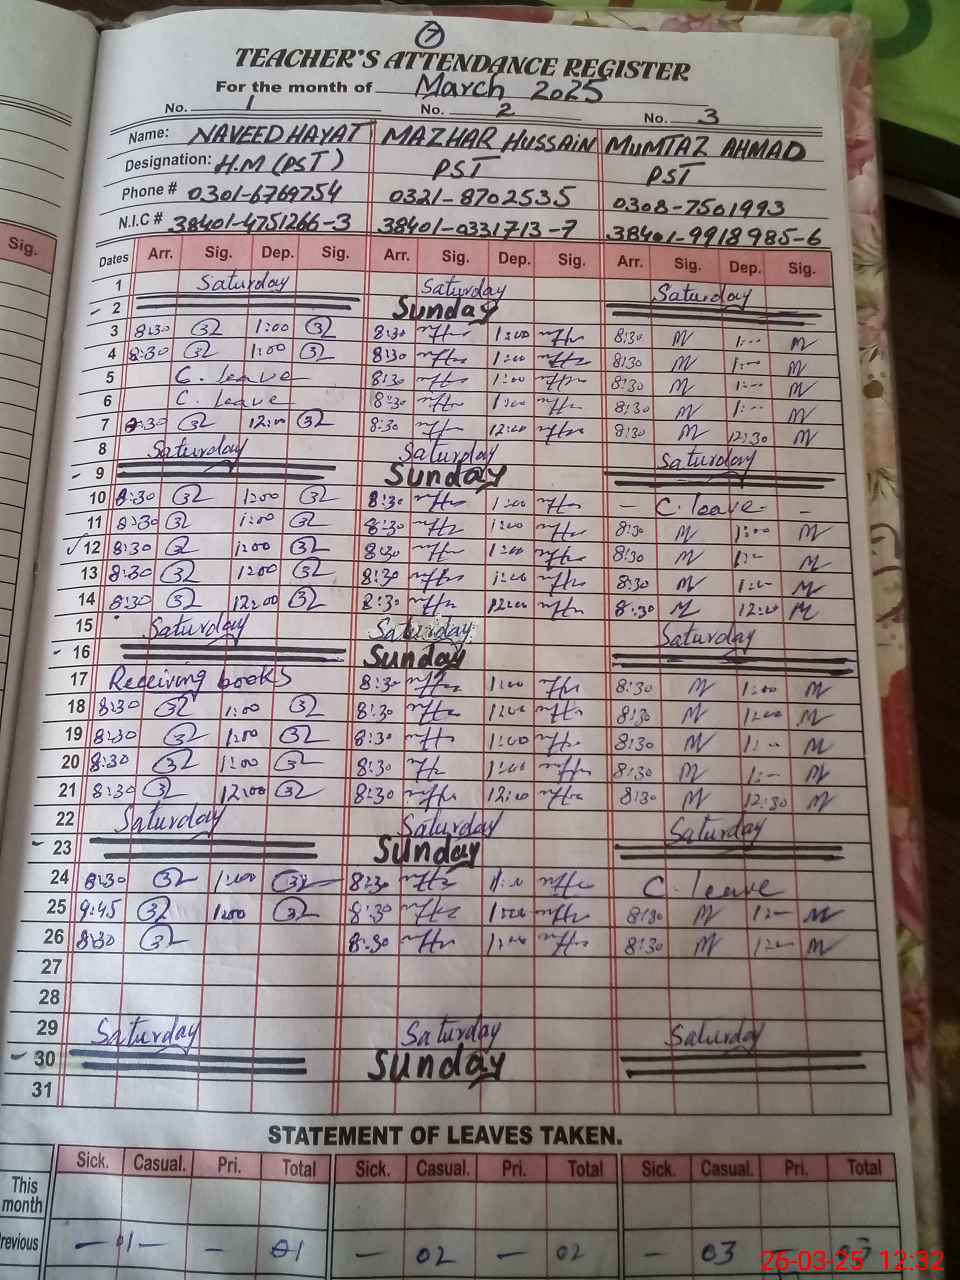 7
TEACHER'S ATTENDANCE REGISTER
For the month of March 2025
No. 1 No. 2 No. 3
Name: NAVEED HAYAT MAZHAR HUSSAIN MUMTAZ AHMAD
Designation: H.M (PST) PST PST
Phone # 0301-6769754 0321-8702535 0308-7501993
N.I.C # 38401-4751266-3 38401-0331713-7 38401-9918985-6
Sig.
Dates Arr. Sig. Dep. Sig. Arr. Sig. Dep. Sig. Arr. Sig. Dep. Sig.
1 Saturday Saturday Saturday
2 Sunday
3 8:30 1:00 8:30 1:00 8:30 1:00
4 8:30 1:00 8:30 1:00 8:30 1:00
5 C. leave 8:30 1:00 8:30 1:00
6 C. leave 8:30 1:00 8:30 1:00
7 8:30 12:00 8:30 12:00 8:30 12:30
8 Saturday Saturday Saturday
9 Sunday
10 8:30 1:00 8:30 1:00 - C. leave -
11 8:30 1:00 8:30 1:00 8:30 1:00
12 8:30 1:00 8:30 1:00 8:30 1:00
13 8:30 1:00 8:30 1:00 8:30 1:00
14 8:30 12:00 8:30 12:00 8:30 12:00
15 Saturday Saturday Saturday
16 Sunday
17 Receiving books 8:30 1:00 8:30 1:00
18 8:30 1:00 8:30 1:00 8:30 1:00
19 8:30 1:00 8:30 1:00 8:30 1:00
20 8:30 1:00 8:30 1:00 8:30 1:00
21 8:30 12:00 8:30 12:00 8:30 12:30
22 Saturday Saturday Saturday
23 Sunday
24 8:30 1:00 8:30 1:00 C. leave
25 9:45 1:00 8:30 1:00 8:30 1:00
26 8:30 8:30 1:00 8:30 1:00
27
28
29 Saturday Saturday Saturday
30 Sunday
31
STATEMENT OF LEAVES TAKEN.
Sick. Casual. Pri. Total Sick. Casual. Pri. Total Sick. Casual. Pri. Total
This month
Previous - 01 - - 01 - 02 - 02 - 03 03
26-03-25 12:32